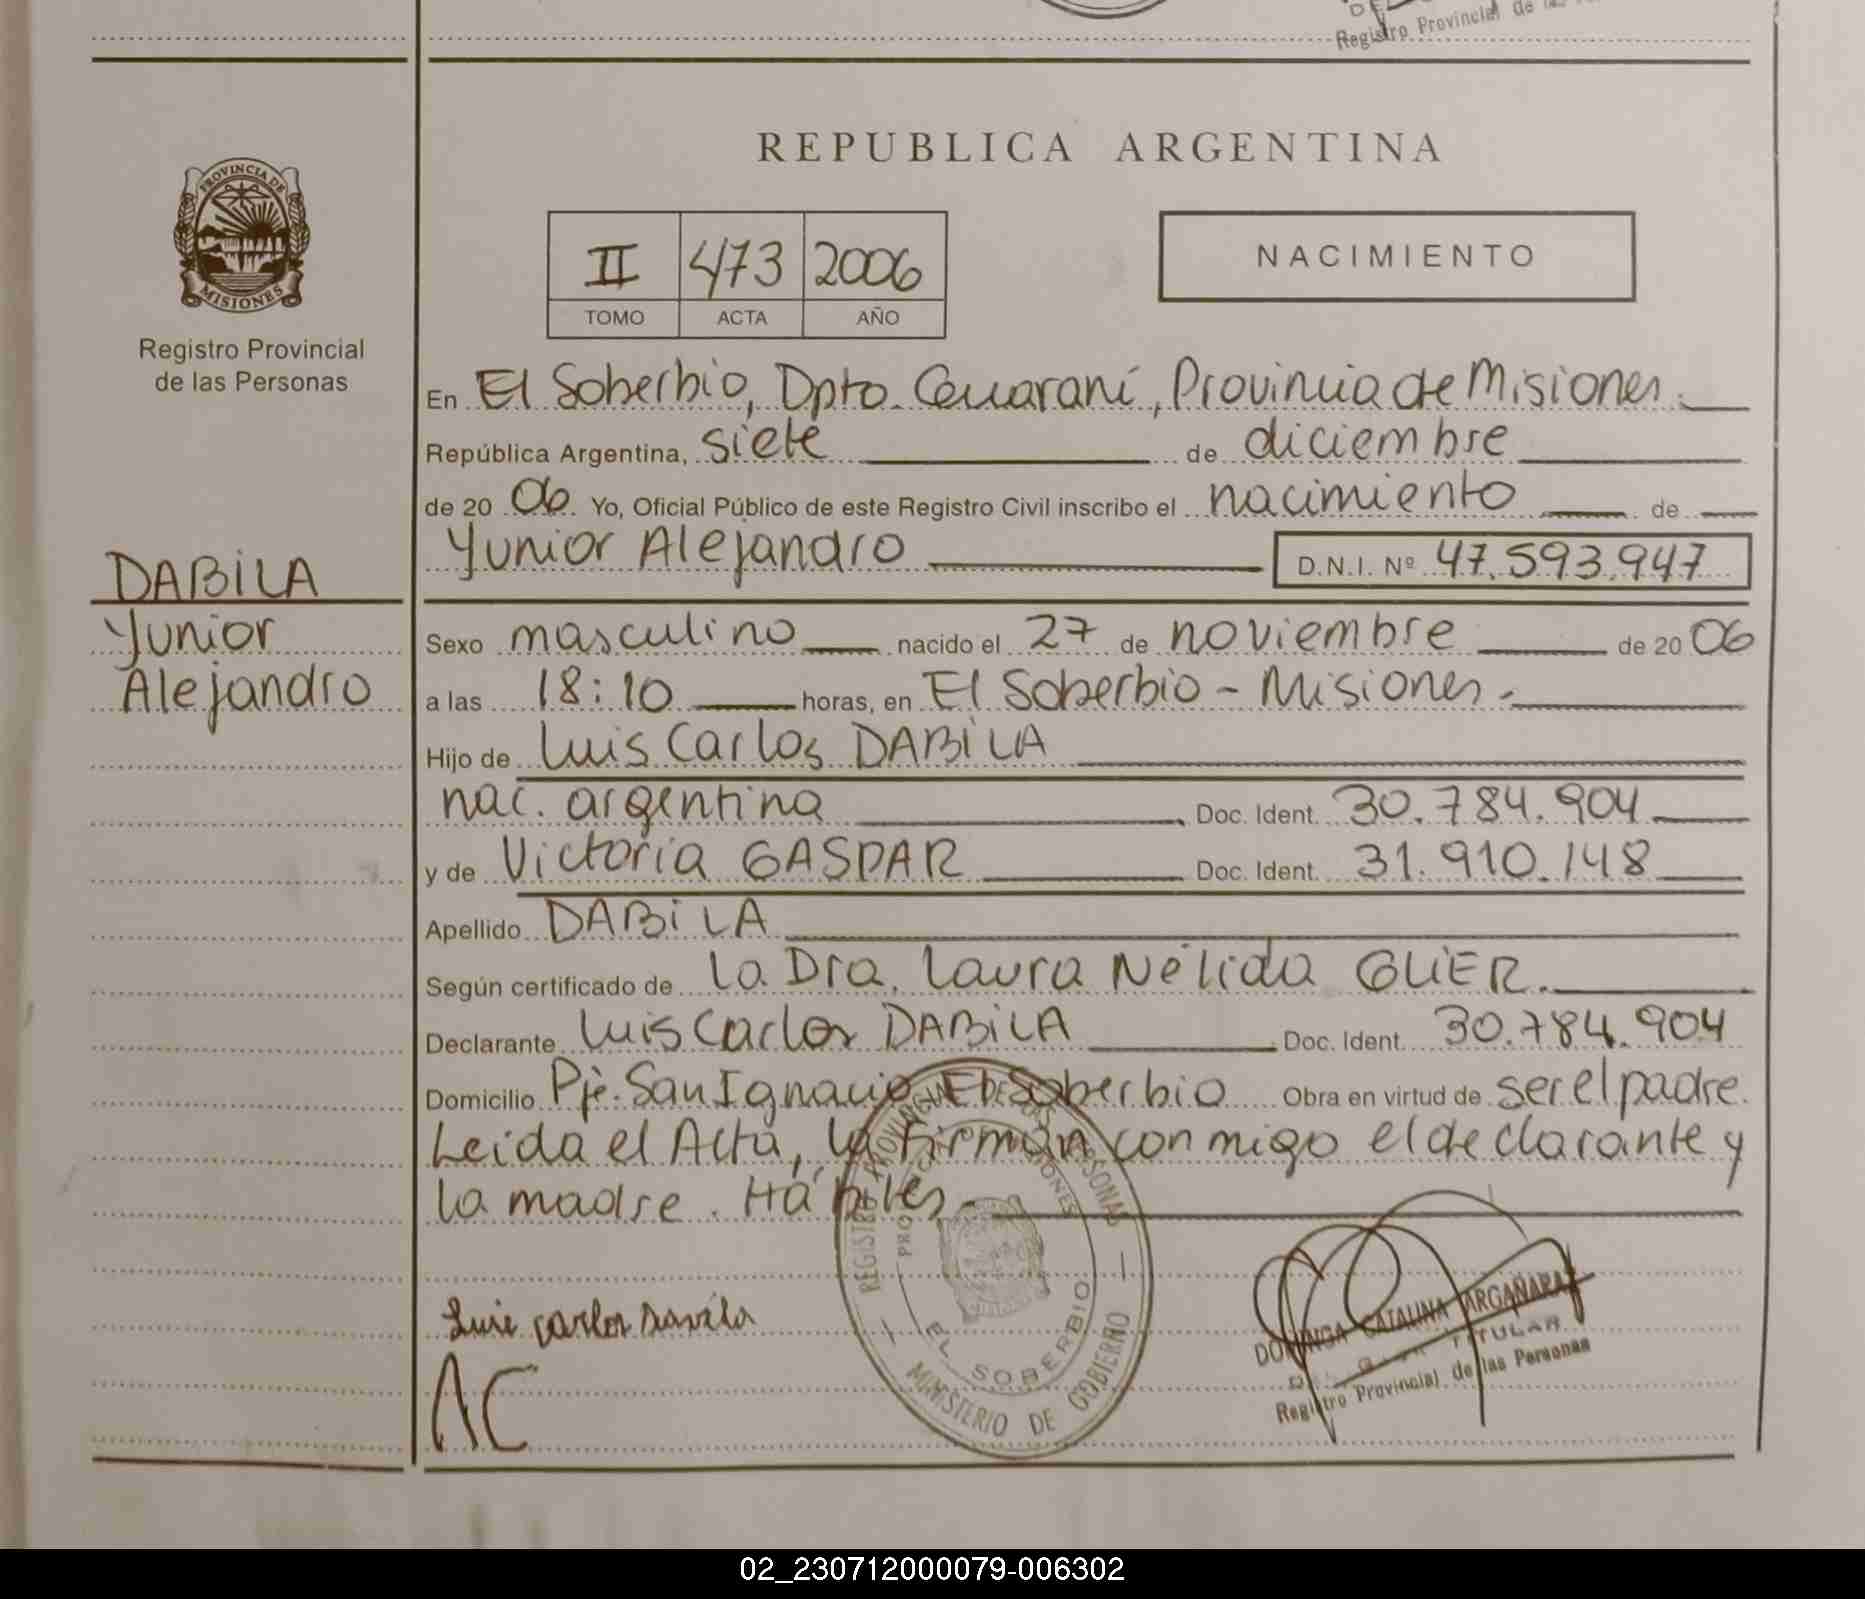 Registro Provincial de las
REPUBLICA ARGENTINA
PROVINCIA DE
MISIONES
Registro Provincial
de las Personas
II 473 2006
TOMO ACTA AÑO
NACIMIENTO
En El Soberbio, Dpto. Guaraní, Provincia de Misiones.
República Argentina, siete de diciembre
de 20 06 Yo, Oficial Público de este Registro Civil inscribo el nacimiento de
Yunior Alejandro D.N.I. Nº 47.593.947
DABiLA
Yunior
Alejandro
Sexo masculino nacido el 27 de noviembre de 20 06
a las 18:10 horas, en El Soberbio - Misiones.
Hijo de Luis Carlos DABiLA
nac. argentina Doc. Ident. 30.784.904
y de Victoria GASPAR Doc. Ident. 31.910.148
Apellido DABiLA
Según certificado de la Dra. Laura Nélida GLiER.
Declarante Luis Carlos DABiLA Doc. Ident. 30.784.904
Domicilio Pje. San Ignacio El Soberbio Obra en virtud de ser el padre.
Leida el Acta, la firman conmigo el declarante y
la madre. Hábiles.
REGISTRO PROVINCIAL DE LAS PERSONAS
MISIONES
EL SOBERBIO
MINISTERIO DE GOBIERNO
Luis Carlos Davila
AC
DOMINGA CATALINA ARGAÑARAZ
TITULAR
Registro Provincial de las Personas
02_230712000079-006302